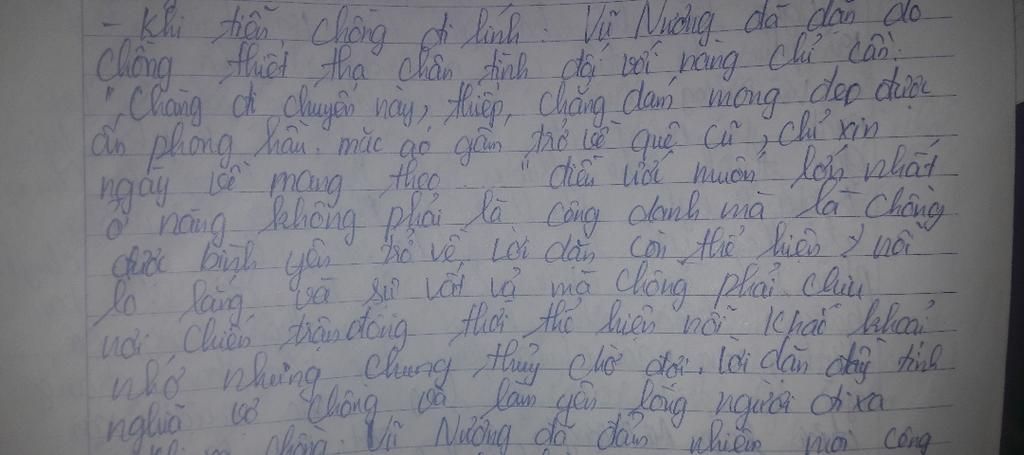 - Khi tiễn chồng đi lính: Vũ Nương đã dặn do
chồng thiết tha chân tình đối với nàng chỉ cần:
"Chàng đi chuyến này, thiếp, chẳng dám mong đeo được
ấn phong hầu. mặc áo gấm trở về quê cũ, chỉ xin
ngày về mang theo ... " điều ước muốn lớn nhất
ở nàng không phải là công danh mà là chồng
được bình yên trở về. Lời dặn còn thể hiện nỗi
lo lắng và sự vất vả mà chồng phải chịu
nơi chiến trận đồng thời thể hiện nỗi khắc khoải
nhớ nhưng chung thuỷ chờ đợi. lời dặn đầy tình
nghĩa vợ chồng và làm yên lòng người đi xa
chồng: Vũ Nương đã đảm nhiên mọi công